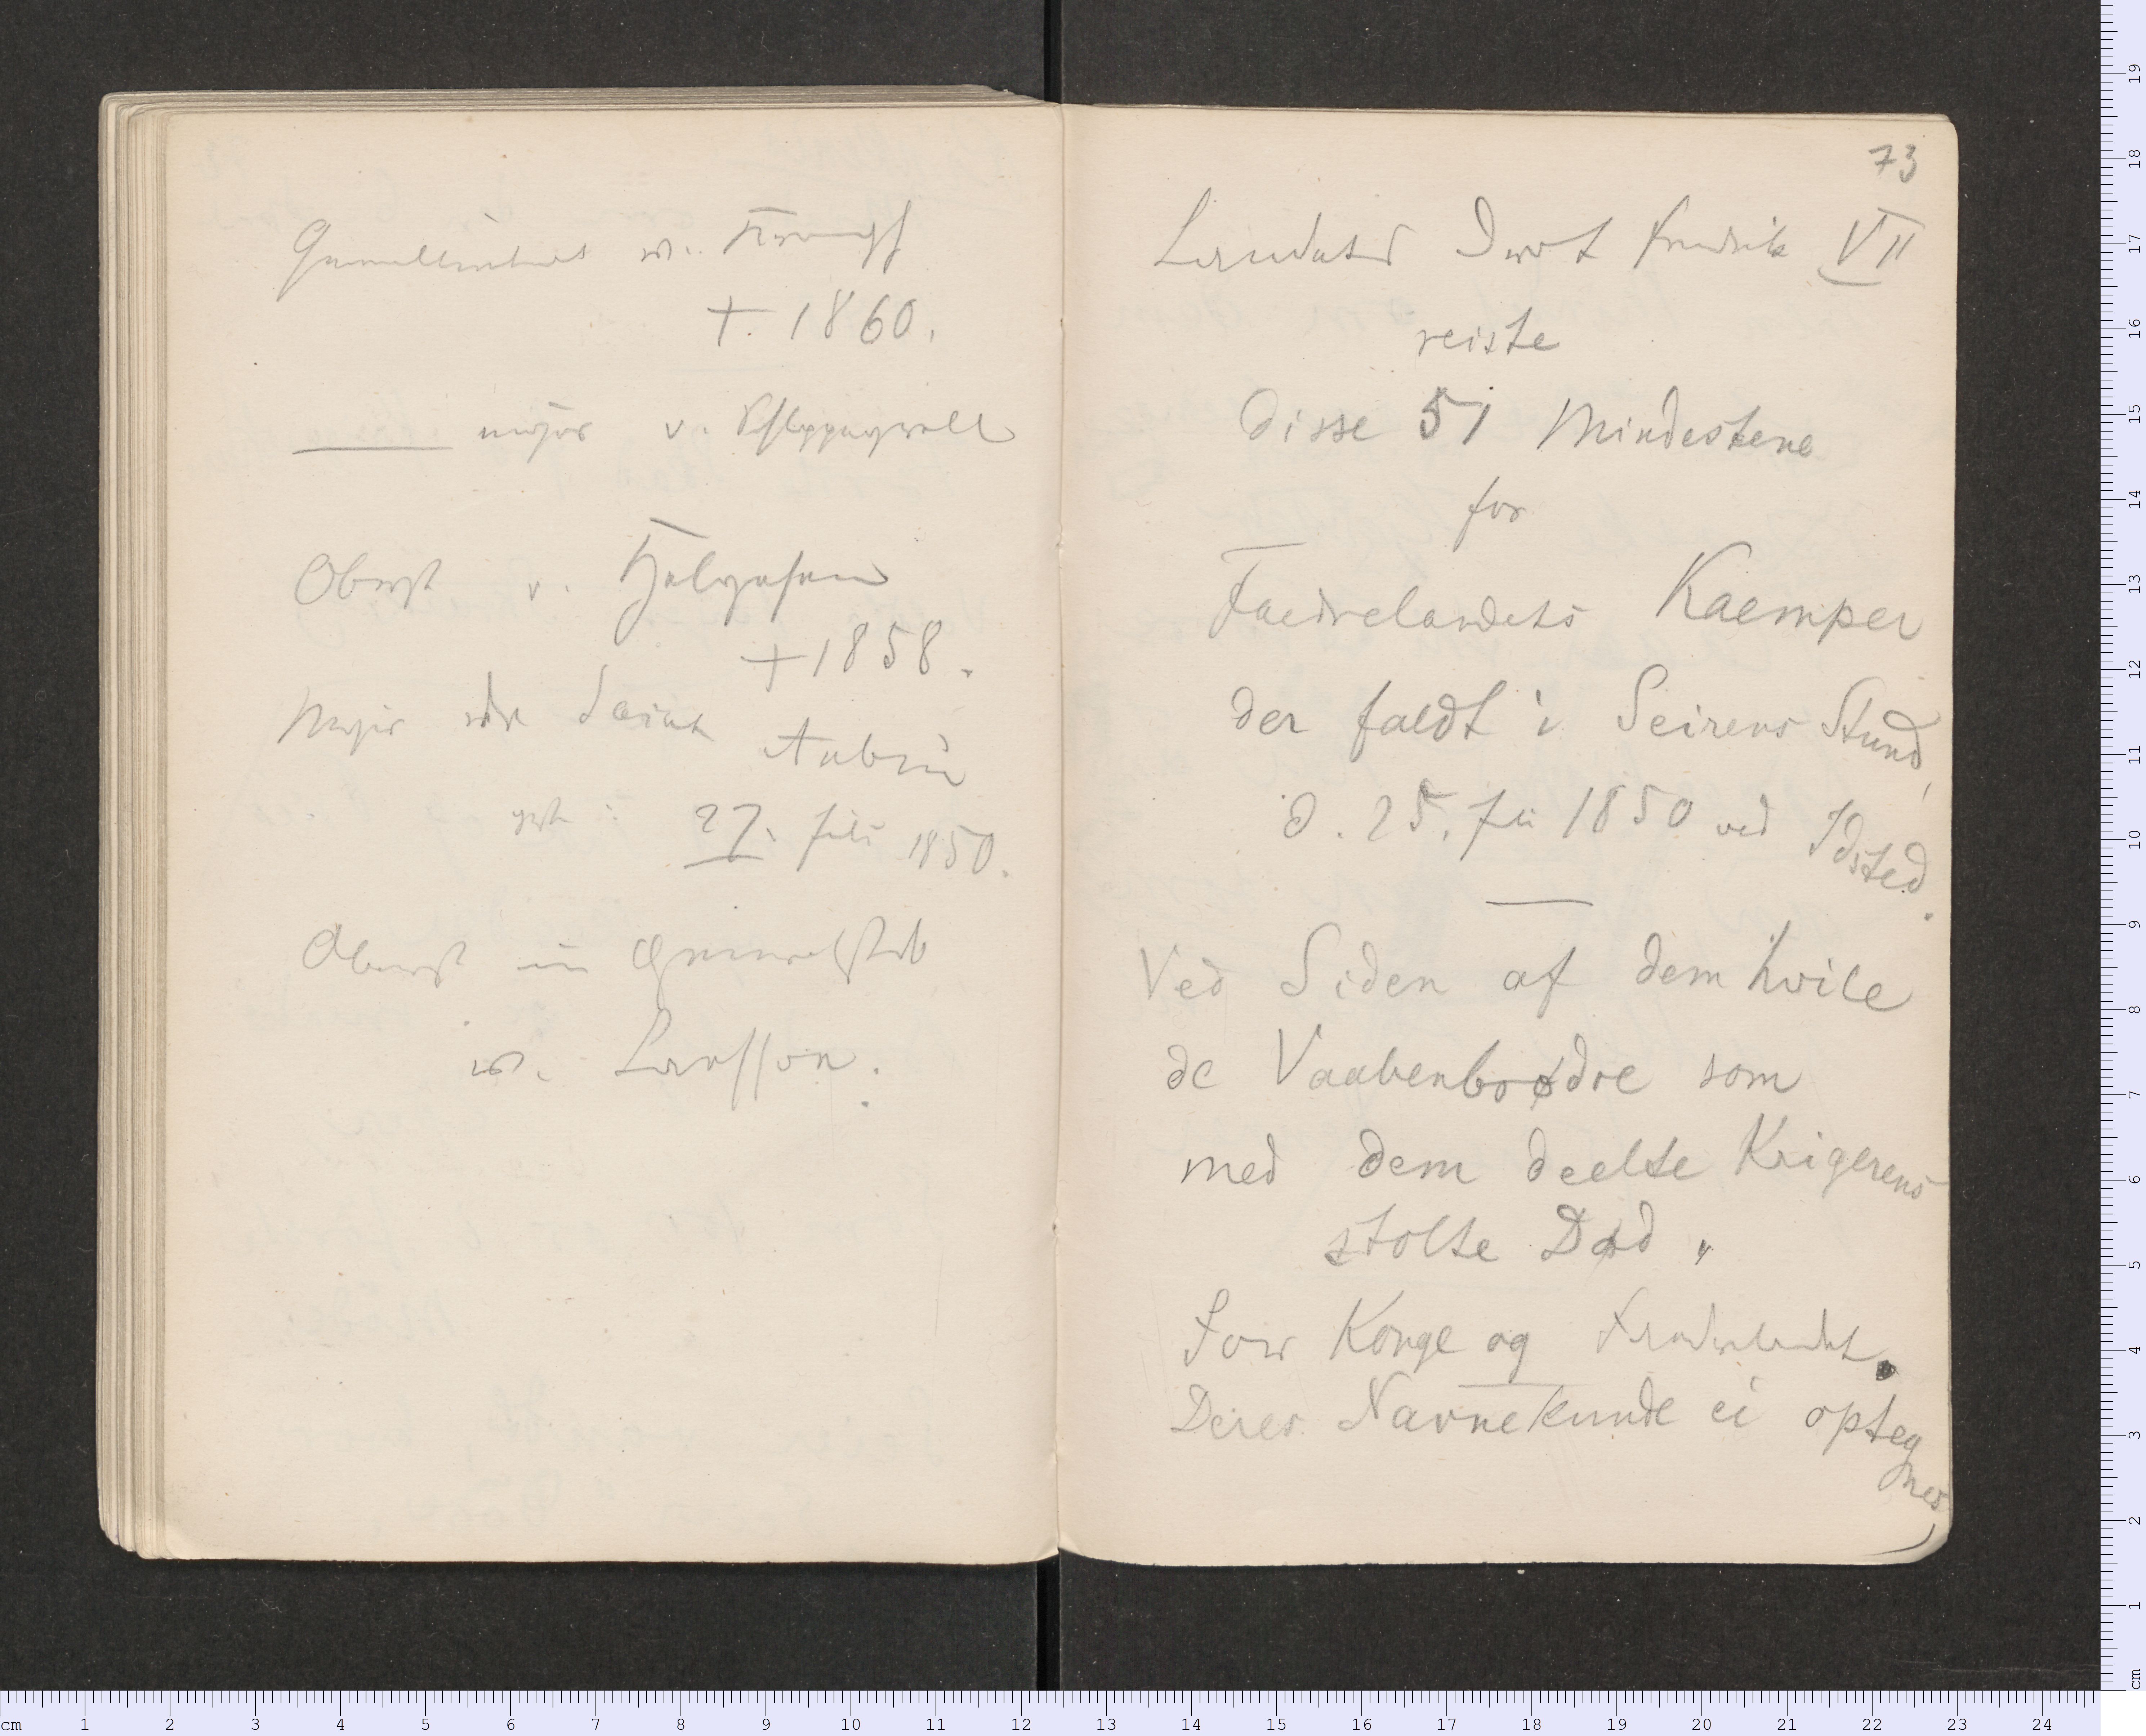 Generallieutenant v. Krompff
† 1860.
major v. Schleppegrell
Oberst v. Helgesen
† 1858.
Major de Saint
Aubin
gest: 27. Juli 1850.
Oberst im Generalstab
v. Laessoe.
73
Landets Drot Fredrik VII
reiste
disse 51 Mindestene
for
Faedrelandets Kaemper
der faldt i Seirens Stund,
d. 25. Juli 1850 ved Idsted.
Ved Siden af dem hvile
de Vaabenbrødre som
med dem deelte Krigerens
stolte Død,
For Konge og Faedrelandet.
Deres Navne kunde ei opteg
nes